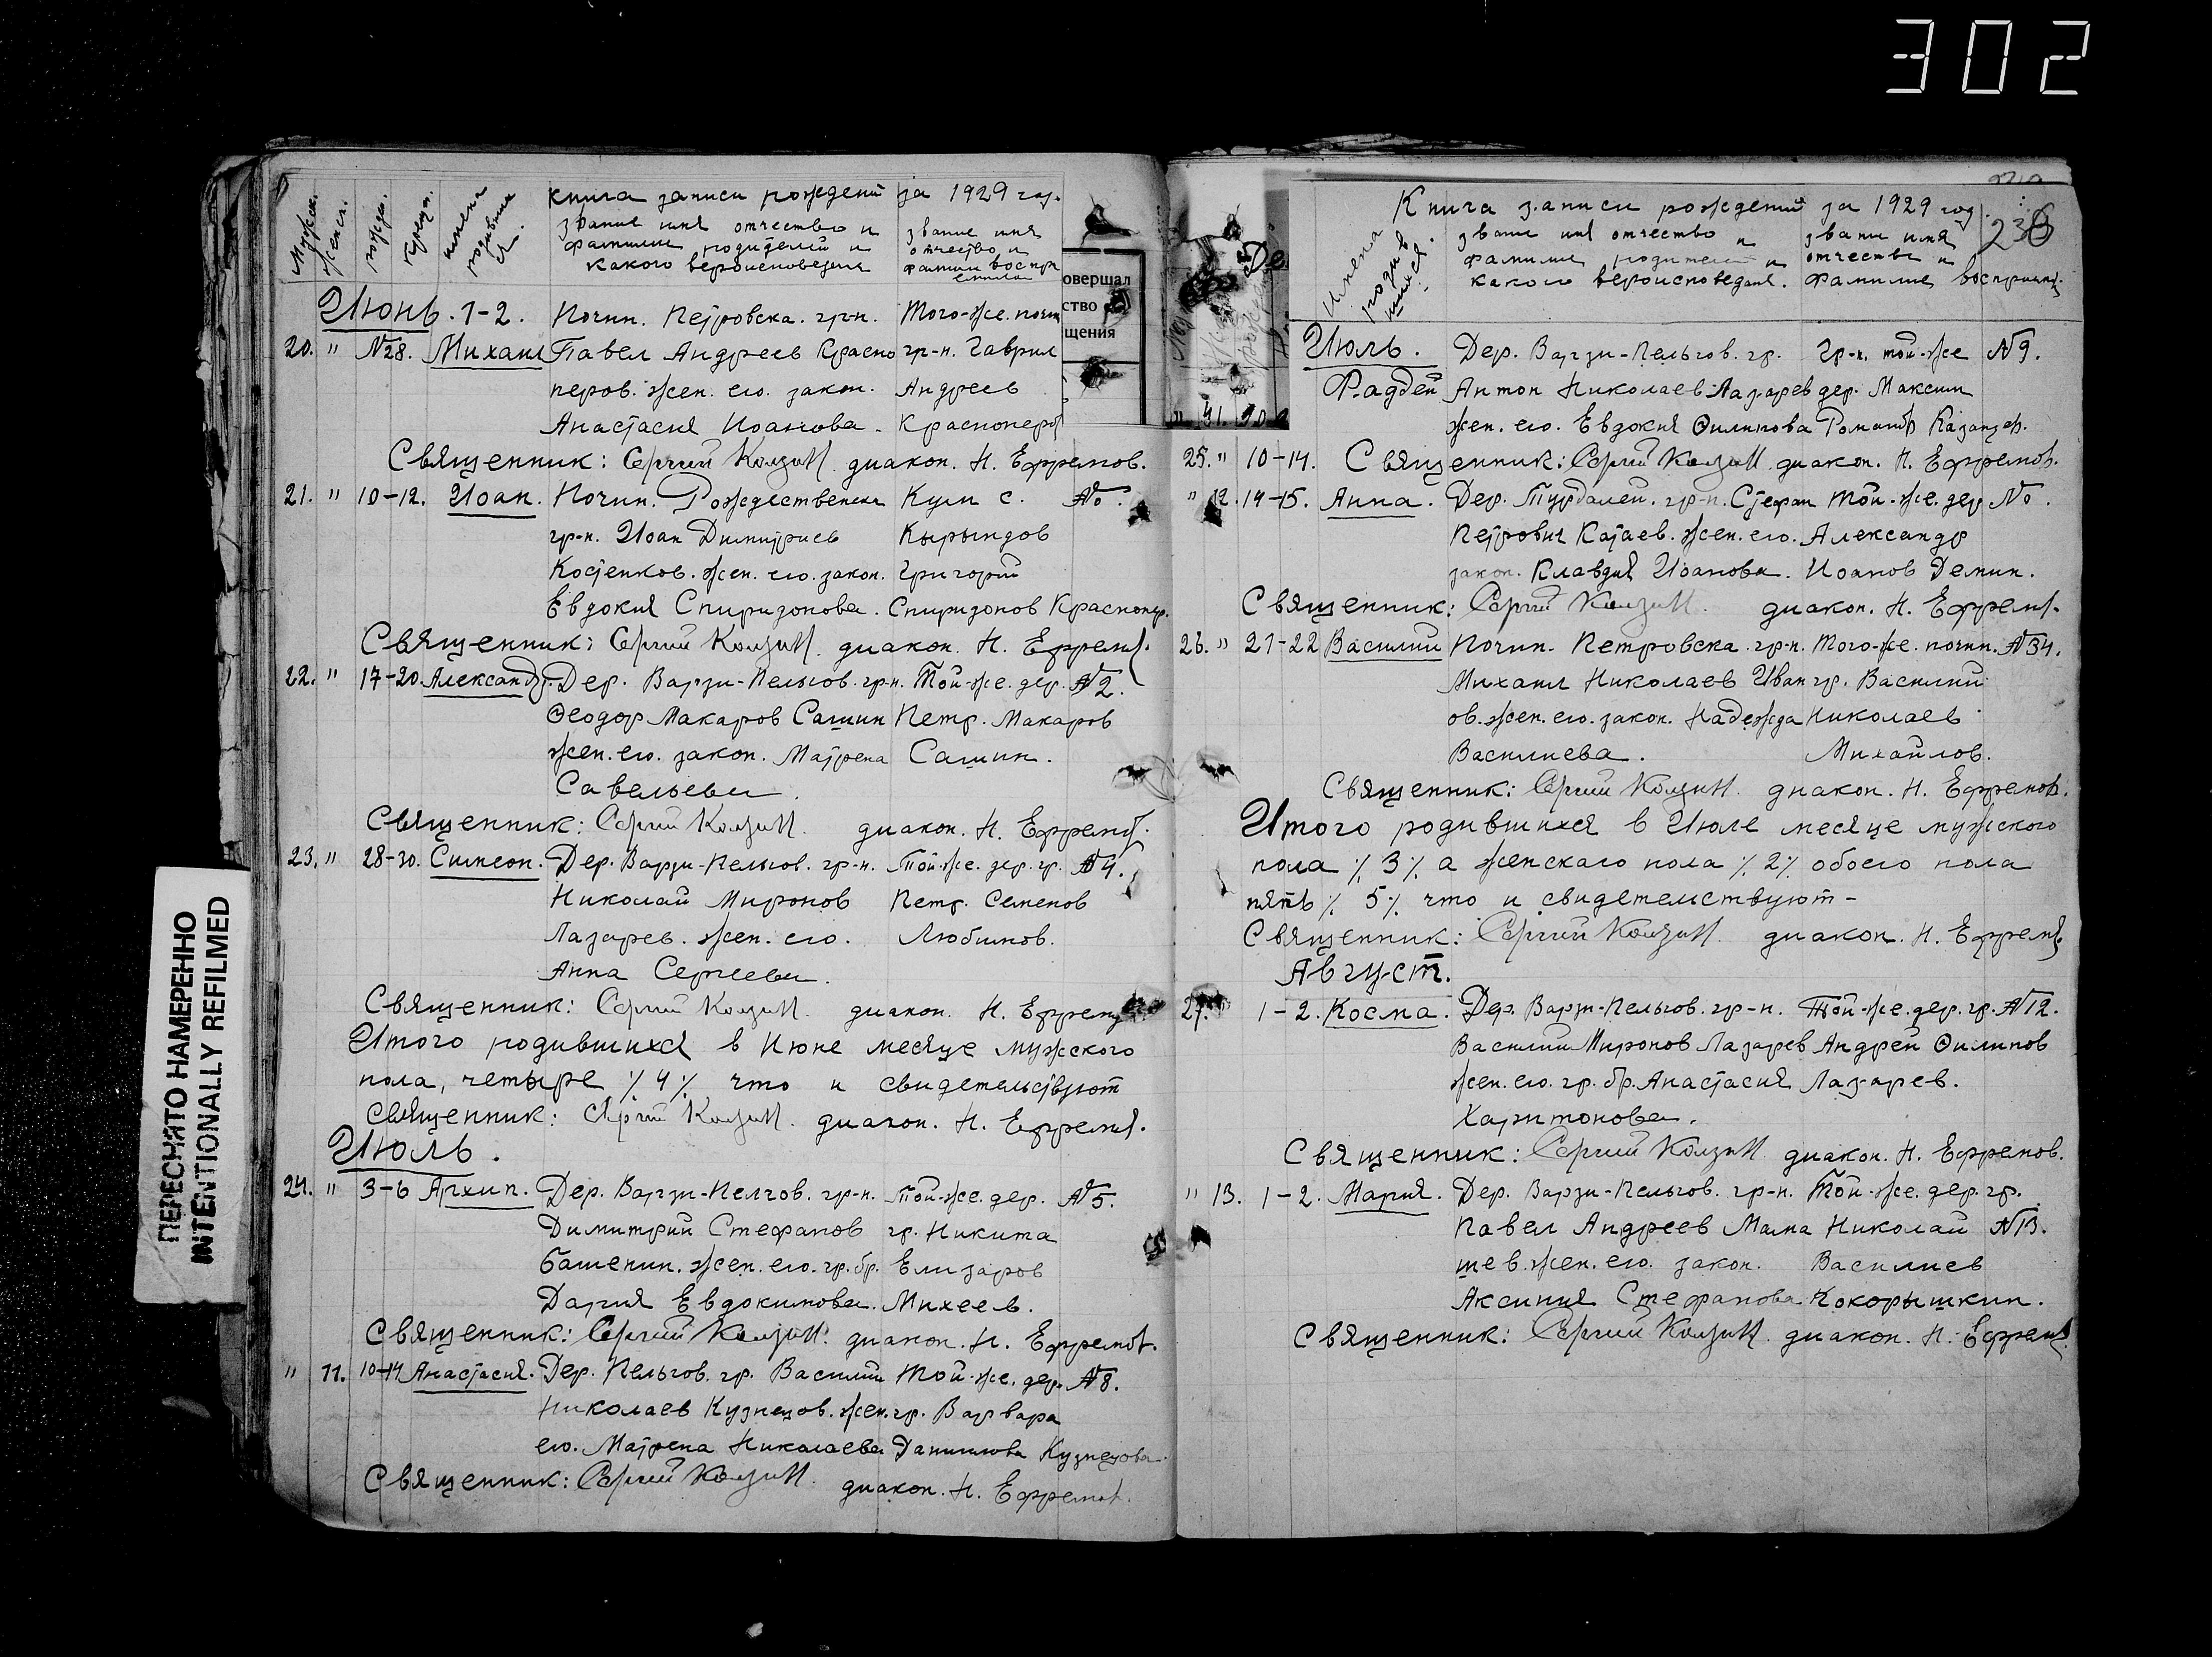 302
Мужск.
женск.
рожден.
крещен.
имена родившихся
книга записи рождений за 1929 год.
звание имя отчество и фамилия родителей и какого вероисповедания
звание имя отчество и фамилия воспр
овершал
ство
щения
Июнь. 1-2. Почин. Петровска. гр-н. Того-же. почин
20. " №28. Михаил Павел Андреев Красно гр-н. Гаврил
перов. жен. его. закон. Андреев
Анастасия Иоанова. Красноперов
Священник: Сергий диакон. Н. Ефремов.
21. " 10-12. Иоан. Почин. Рождественска Кули с. №.
гр-н. Иоан Димитриев Кырындов
Костенков. жен. его. закон. Григорий
Евдокия Спиридонова. Спиридонов Краснопер.
Священник: Сергий диакон. Н. Ефремов.
22. " 17-20. Александр. Дер. Варзи-Пельгов. гр-н. Той-же. дер. №2.
Феодор Макаров Сашин Петр. Макаров
жен. его. закон. Матрена Сашин.
Савельева.
Священник: Сергий диакон. Н. Ефремов.
23. " 28-30. Симеон. Дер. Варзи-Пельгов. гр-н. Той-же. дер. гр. №4.
Николай Миронов Петр. Семенов
Лазарев. жен. его. Любимов.
Анна Сергеева.
Священник: Сергий диакон. Н. Ефремов
Итого родившихся в Июне месяце мужского
пола, четыре % 4 % что и свидетельствуют
Священник: Сергий диакон. Н. Ефремов.
Июль.
24. " 3-6 Архип. Дер. Варзи-Пелгов. гр-н. Той-же. дер. №5.
Димитрий Стефанов гр. Никита
Башенин. жен. его. гр. бр. Елизаров
Дария Евдокимова. Михеев.
Священник: Сергий диакон. Н. Ефремов.
" 11. 10-14 Анастасия. Дер. Пельгов. гр. Василий Той-же. дер. №8.
Николаев Кузнецов. жен. гр. Варвара
его. Матрена Николаева Данилова Кузнецова.
Священник: Сергий диакон. Н. Ефремов.
ПЕРЕСНЯТО НАМЕРЕННО
INTENTIONALLY REFILMED
Книга записи рождений за 1929 год
Имена родившихся.
звание имя отчество и фамилия родителей и какого вероисповедания.
звани имя отчество и фамилия восприем.
Июль. Дер. Варзи-Пельгов. гр. Гр-н. той-же №9.
Фаддей Антон Николаев Лазарев дер. Максим
жен. его. Евдокия Филипова Романов Казанцев.
25. " 10-14. Священник: Сергий диакон. Н. Ефремов.
" 12. 14-15. Анна. Дер. Турдалей. гр-н. Стефан Той-же. дер №.
Петрович Катаев. жен. его. Александр
закон. Клавдия Иоанова. Иоанов Демин.
Священник: Сергий диакон. Н. Ефремов.
26. " 21-22 Василий Почин. Петровска. гр-н. Того-же. почин. №34.
Михаил Николаев Иван гр. Василий
ов. жен. его. закон. Надежда Николаев
Василиева. Михайлов.
Священник: Сергий диакон. Н. Ефремов.
Итого родившихся в Июле месяце мужского
пола % 3 % а женскаго пола % 2 % обоего пола
пять % 5 % что и свидетельствуют-
Священник: Сергий диакон. Н. Ефремов.
Август.
27. " 1-2. Косма. Дер. Варзи-Пельгов. гр-н. Той-же. дер. гр. №12.
Василий Миронов Лазарев Андрей Филипов
жен. его. гр. бр. Анастасия Лазарев.
Харитонова.
Священник: Сергий диакон. Н. Ефремов.
" 13. 1-2. Мария. Дер. Варзи-Пельгов. гр-н. Той-же. дер. гр.
Павел Андреев Мама Николай №13.
шев. жен. его. закон. Василиев
Аксиния Стефанова Кокорышкин.
Священник: Сергий диакон. Н. Ефремов.